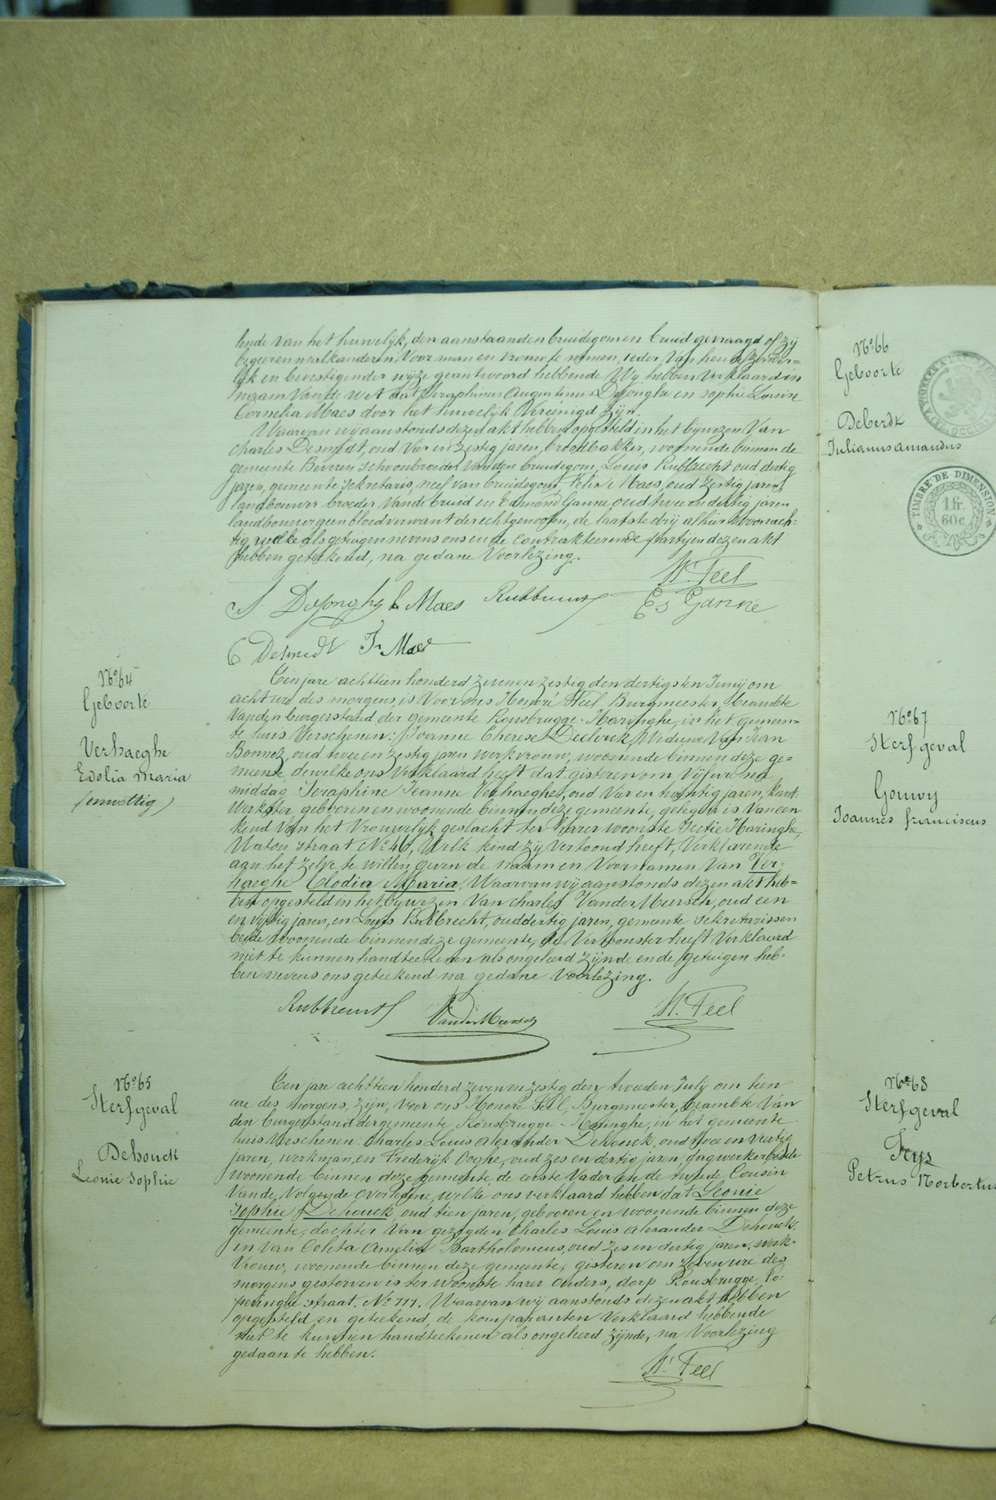 einde van het huwelijk, den aanstaanden bruidegom en bruid gevraagd of zij
begeeren malkanderen voor man en vrouw te nemen, ieder van hen afzonder-
lijk en bevestigender wijze geantwoord hebbende Wij hebben verklaard in
naam van de wet dat Seraphinus Augustinus Dejonghe en Sophie Louise
Cornelia Maes door het huwelijk vereenigd zijn.
Waarvan wij aanstonds dezen akt hebben opgesteld in het bijwezen van
Charles Desmedt, oud vier en zestig jaren, broodbakker, woonende binnen de
gemeente Beveren schoonbroeder van den bruidegom, Louis Rubbrecht oud dertig
jaren, gemeente sekretaris, neef van bruidegom, Felix Maes, oud zestig jaren,
landbouwer broeder van de bruid en Edmond Ganne oud twee en dertig jaren
landbouwer geen bloedverwant der echtgenooten, de laatste drij alhier woonach-
tig welke als getuigen nevens ons en de contrakteerende partijen dezen akt
hebben geteekend, na gedane voorlezing.
H. Feel
S Dejonghe L Maes Rubbrecht Es Ganne
C Desmedt F. Maes
N° 64
Geboorte
Verhaeghe
Elodia Maria
(onwettig)
Ten jare achttien honderd zeven en zestig den dertigsten Junij om
acht ure des morgens, is voor ons Honoré Feel Burgmeester, Beambte
van den burgerstand der gemeente Rousbrugge-Haringhe, in het gemeen-
te huis verschenen: Joanna Theresa Declerck, Weduwe van Jean
Bonvez, oud twee en zestig jaren werkvrouw, woonende binnen deze ge-
meente, dewelke ons verklaard heeft dat gisteren om vijf ure na
middag Seraphine Jeanne Verhaeghe, oud vier en twintig jaren, kant
werkster, geboren en woonende binnen deze gemeente, gelegen is van een
kind van het vrouwelijk geslacht ter harer woonste Sectie Haringhe,
Watou straat N° 46, Welk kind zij vertoond heeft, verklarende
aan het zelve te willen geven de naam en voornamen van Ver-
haeghe Elodia Maria, Waarvan wij aanstonds dezen akt heb-
ben opgesteld in het bijwezen van Charles Vander Meersch, oud een
en vijftig jaren, en Louis Rubbrecht, oud dertig jaren, gemeente sekretarissen
beide woonende binnen deze gemeente, de vertoonster heeft verklaard
niet te kunnen handteekenen als ongeleerd zijnde en de getuigen heb-
ben nevens ons geteekend na gedane voorlezing.
Rubbrecht VanderMeersch H. Feel
N° 65
Sterfgeval
Dehouck
Leonie Sophie
Ten jare achttien honderd zeven en zestig den tweeden July om tien
ure des morgens, zijn voor ons Honoré Feel, Burgmeester, Beambte van
den burgerstand der gemeente Rousbrugge-Haringhe, in het gemeente
huis verschenen Charles Louis Alexander Dehouck, oud twee en veertig
jaren, werkman, en Frederijk Ooghe, oud zes en dertig jaren, dagwerker, beide
woonende binnen deze gemeente de eerste Vader en de tweede Cousin
van de volgende overledene, welke ons verklaard hebben dat Leonie
Sophie Dehouck oud tien jaren, geboren en woonende binnen deze
gemeente, dochter van gezegden Charles Louis Alexander Dehouck,
en van Coleta Amelia Bartholomeus, oud zes en dertig jaren, werk-
vrouw, woonende binnen deze gemeente, gisteren om zeven ure des
morgens gestorven is ter woonste harer ouders, dorp Rousbrugge, Po-
peringhe straat, N° 111. Waarvan wij aanstonds dezen akt hebben
opgesteld en geteekend, de komparanten verklaard hebbende
niet te kunnen handteekenen als ongeleerd zijnde, na voorlezing
gedaan te hebben.
H. Feel
N° 66
Geboorte
Deberdt
Julianus Amandus
TIMBRE DE DIMENSION
1 fr.
60 c.
N° 67
Sterfgeval
Gouwy
Joannes Franciscus
N° 68
Sterfgeval
Feys
Petrus Norbertus